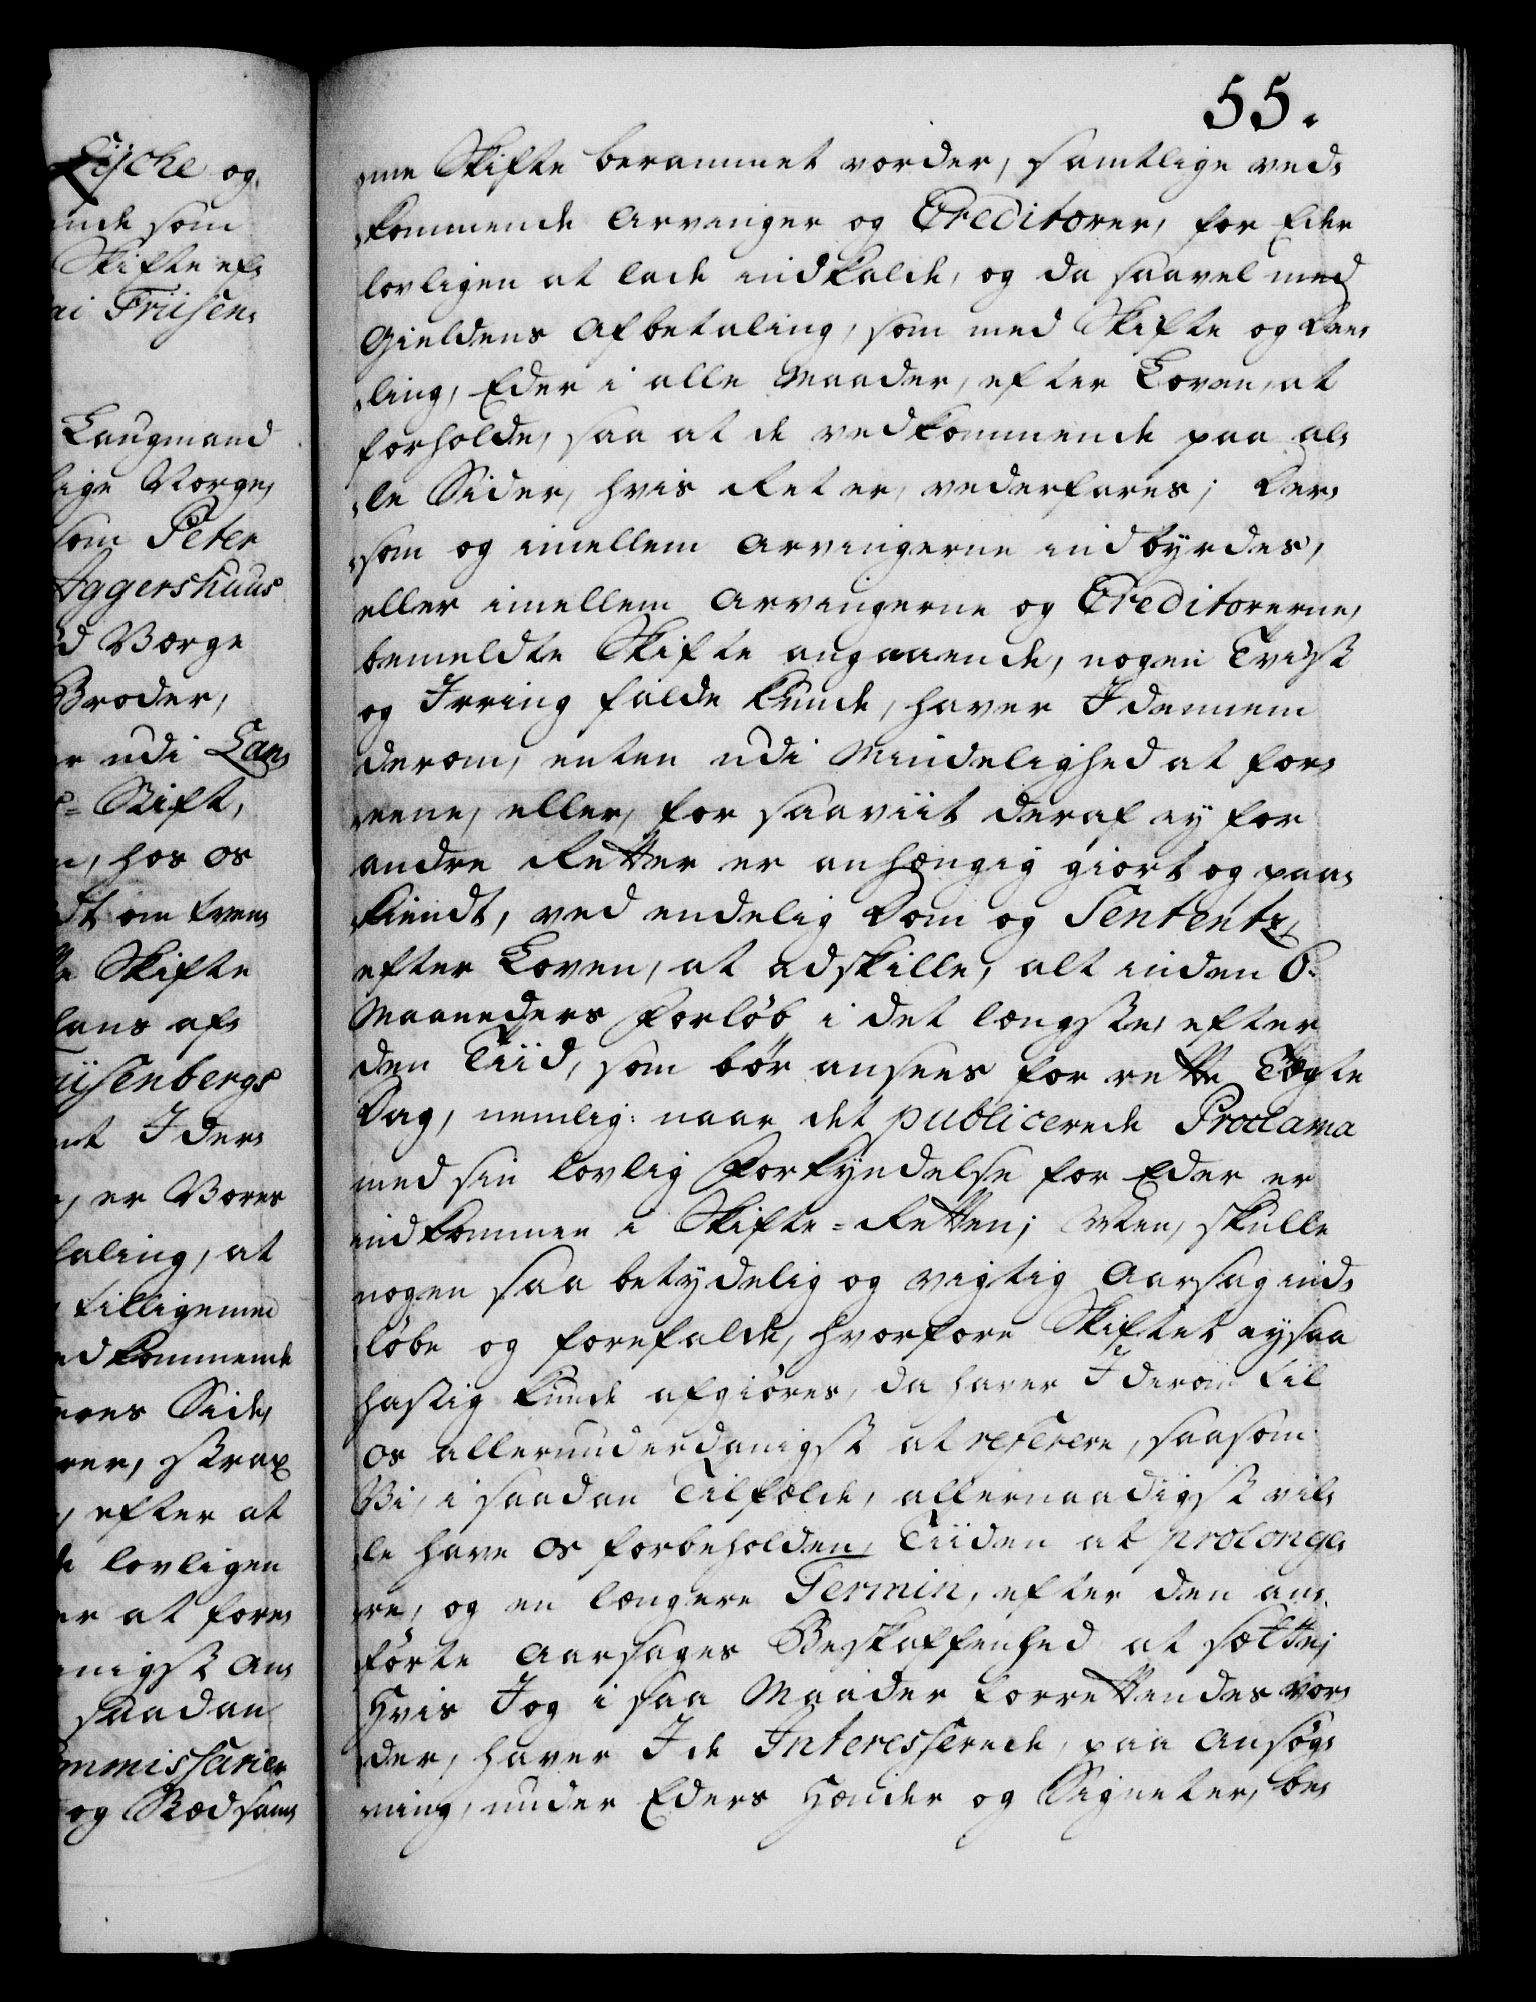 Lÿche og
ende som
Skifte ef-
ai Friisen-
Laugmand
lige Norge,
som Peter
Aggershuus
d Værge
Broder,
r udi Lan-
Stift,
n, hos os
dt om Even-
te Skifte
lans af-
riisenbergs
nt I der-
, er Vores
faling, at
tilligemed
edkommende
nes Side,
rer, strax
, efter at
de lovligen
er at fore-
anigst An-
saadan
ommissarier
og Bædsam-
55.
me Skifte berammet vorder, samtlige ved-
kommende Arvinger og Creditorer, for Eder
lovligen at lade indkalde, og da saavel med
Gieldens Afbetaling, som med Skifte og Dee-
ling, Eder i alle Maader, efter Loven, at
forholde, saa at de vedkommende paa al-
le Sider, hvis Ret er, vederfares; Der-
som og imellem Arvingerne indbÿrdes,
eller imellem Arvingerne og Creditorerne,
bemeldte Skifte angaaende, nogen Tvist
og Irring falde kunde, haver I dennem
derom, enten udi Mindelighed at for-
eene, eller, for saaviit deraf eÿ for
andre Retter er anhængig giort og paa-
kiendt, ved endelig Dom og Sententz,
efter Loven, at adskille, alt inden 6
Maaneders Forløb i det længste, efter
den Tiid, som bør ansees for rette Tægte
Dag, nemlig: naar det publicerede Proclama
med sin lovlig Forkÿndelse for Eder er
indkommen i Skifte-Retten; Men, skulle
nogen saa betÿdelig og vigtig Aarsag ind-
løbe og forefalde, hvorfore Skiftet eÿ saa
hastig kunde afgiøres, da haver I derom til
os allerunderdanigst at referere, saasom
Vi, i saadan Tilfælde, allernaadigst vil-
le have os forbeholden, Tiiden at prolonge-
re, og en længere Termin, efter den an-
førte Aarsages Beskaffenhed at sætte;
Hvis I og i saa Maader forrettendes vor-
der, haver I de Interesserede, paa Ansøg-
ning, under Eders Hænder og Signeter, be-